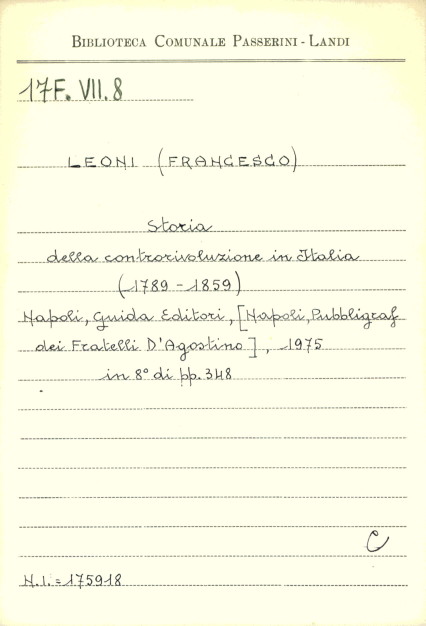 BIBLIOTECA COMUNALE PASSERINI - LANDI
17F. VII. 8
LEONI (FRANCESCO)
Storia
della controrivoluzione in Italia
(1789 - 1859)
Napoli, Guida Editori, [Napoli, Pubbligraf
dei Fratelli D'Agostino], 1975
in 8° di pp. 348
C
N.I. = 175918